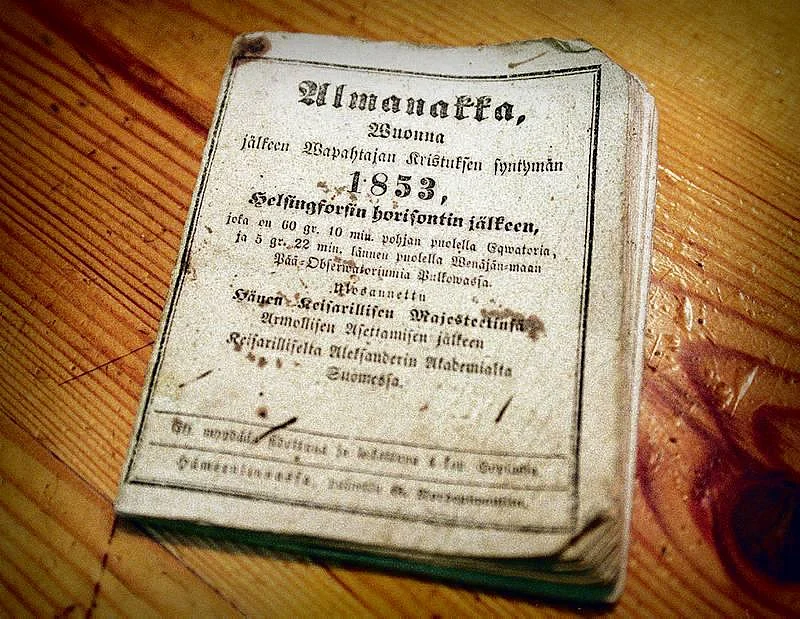 Almanakka,
Wuonna
jälkeen Wapahtajan Kristuksen syntymän
1853,
Helsingforsin horisontin jälkeen,
joka on 60 gr. 10 min. pohjan puolella Eqwatoria,
ja 5 gr. 22 min. lännen puolella Wenäjän-maan
Pää-Observatoriumia Pulkowassa.
Ulosannettu
Hänen Keisarillisen Majesteetinsa
Armollisen Asettamisen jälkeen
Keisarilliselta Aleksanderin Akademialta
Suomessa.
myydään ja 4 kop.
Hämeenlinnassa,